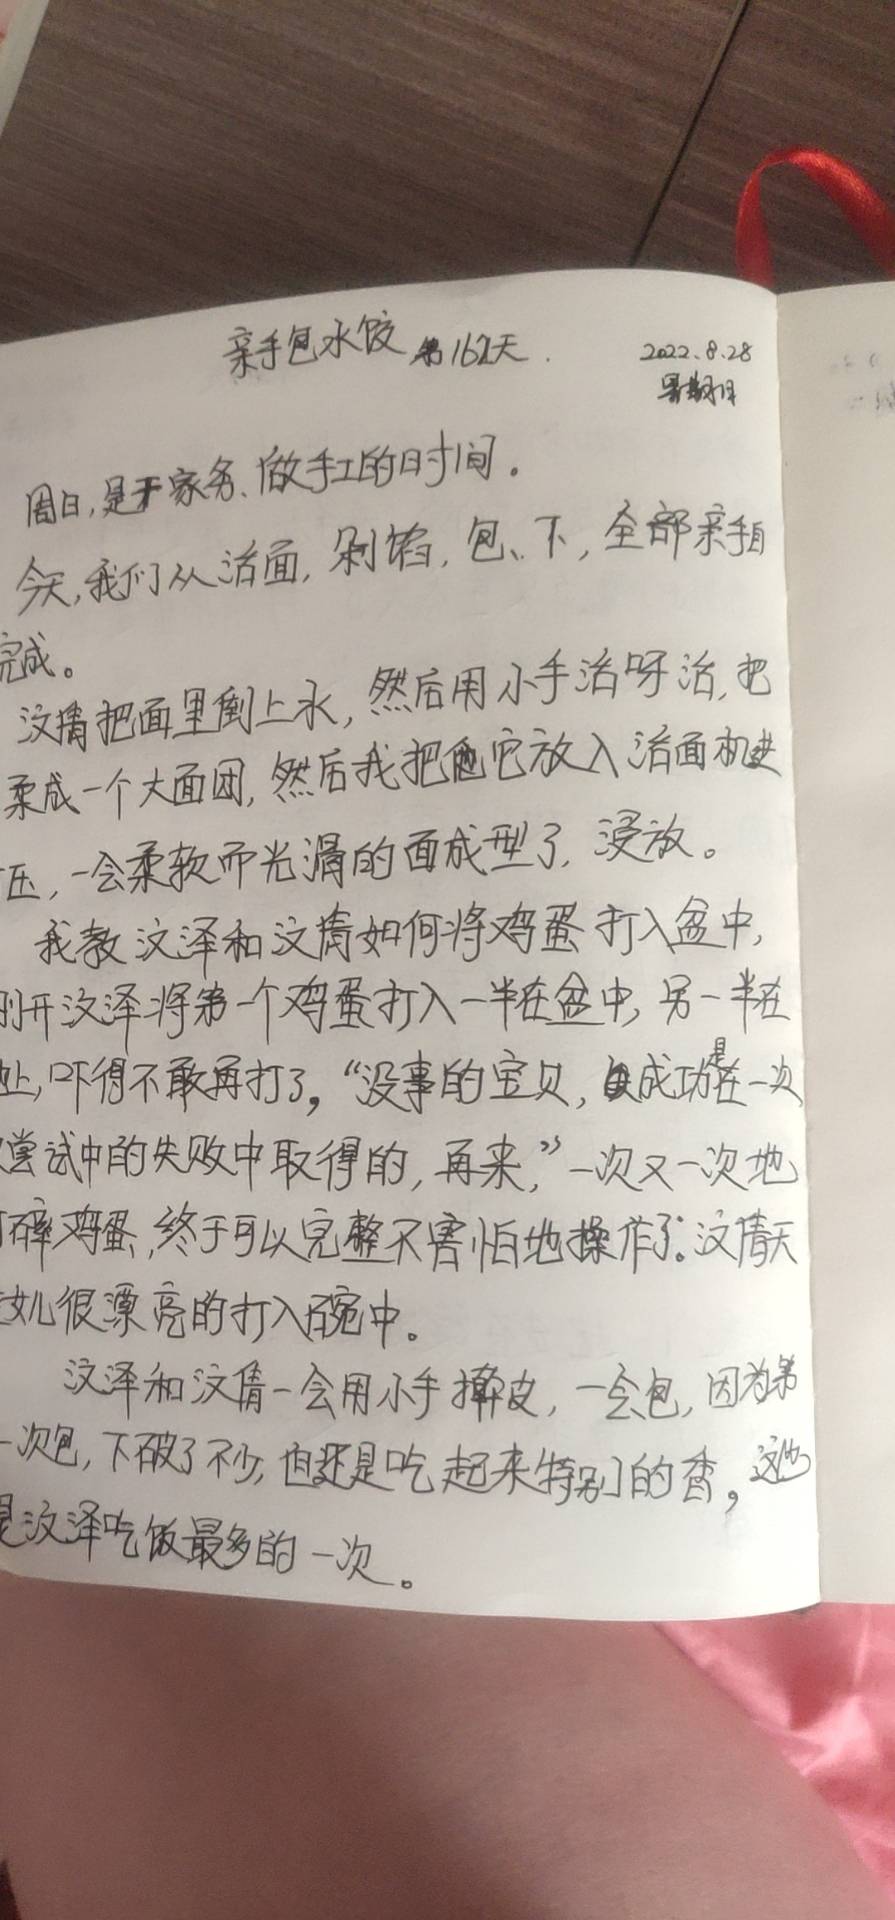 亲手包水饺 第162天.
2022.8.28
星期日
周日,是干家务、做手工的时间。
今天,我们从活面,剁馅,包、下,全部亲自
完成。
汶倩把面里倒上水,然后用小手活呀活,把
柔成一个大面团,然后我把它放入活面机
压,一会柔软而光滑的面成型了,浸放。
我教汶泽和汶倩如何将鸡蛋打入盆中,
刚开汶泽将第一个鸡蛋打入一半在盆中,另一半在
吓得不敢再打了。“没事的宝贝,成功是在一次
尝试中的失败中取得的,再来,”一次又一次地
打碎鸡蛋,终于可以完整不害怕地操作了。汶倩天
女儿很漂亮的打入碗中。
汶泽和汶倩一会用小手擀皮,一会包,因为第
一次包,下破了不少,但还是吃起来特别的香。这也
是汶泽吃饭最多的一次。